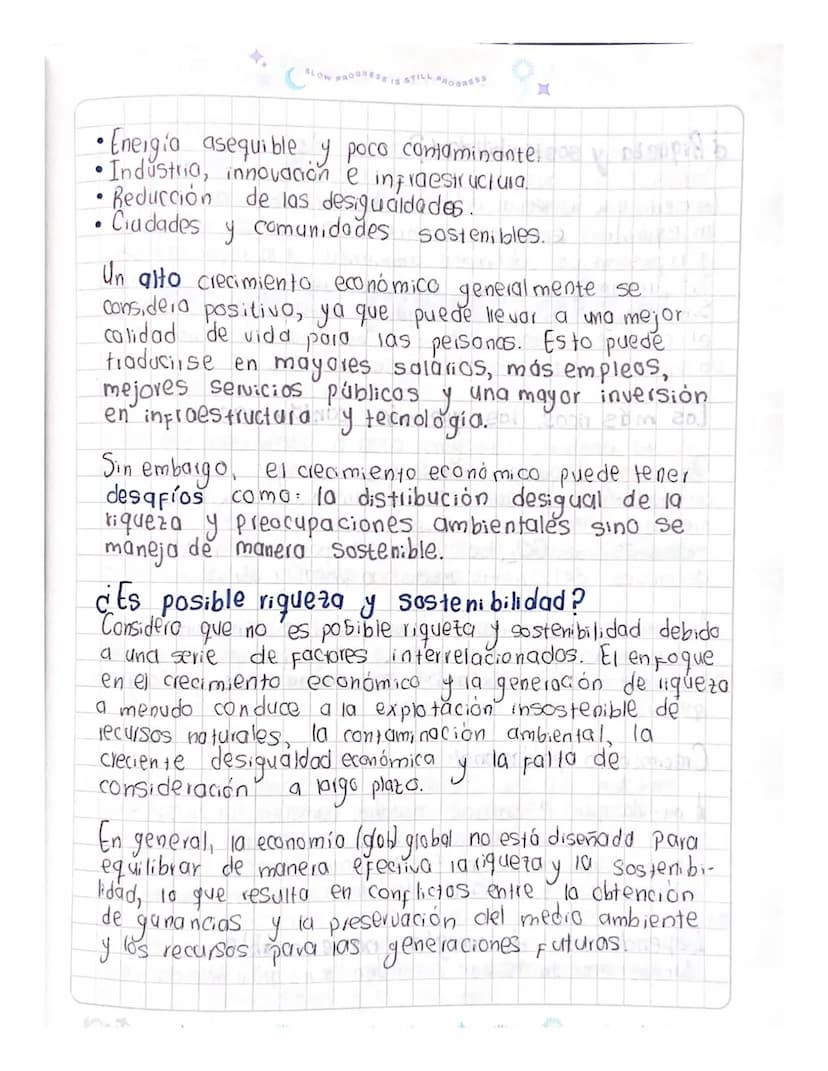 SLOW PROGRESS IS STILL PROGRESS
• Energía asequible y poco contaminante.
• Industria, innovación e infraestructura.
• Reducción de las desigualdades.
• Ciudades y comunidades sostenibles.
Un alto crecimiento económico generalmente se
considera positivo, ya que puede llevar a una mejor
calidad de vida para las personas. Esto puede
traducirse en mayores salarios, más empleos,
mejores servicios públicos y una mayor inversión
en infraestructura y tecnología.
Sin embargo, el crecimiento económico puede tener
desafíos como: la distribución desigual de la
riqueza y preocupaciones ambientales sino se
maneja de manera sostenible.
¿Es posible riqueza y sostenibilidad?
Considero que no es posible riqueza y sostenibilidad debido
a una serie de factores interrelacionados. El enfoque
en el crecimiento económico y la generación de riqueza
a menudo conduce a la explotación insostenible de
recursos naturales, la contaminación ambiental, la
creciente desigualdad económica y la falla de
consideración a largo plazo.
En general, la economía (glob) global no está diseñada para
equilibrar de manera efectiva la riqueza y la sostenibi-
lidad, lo que resulta en conflictos entre la obtención
de ganancias y la preservación del medio ambiente
y los recursos para las generaciones futuras.